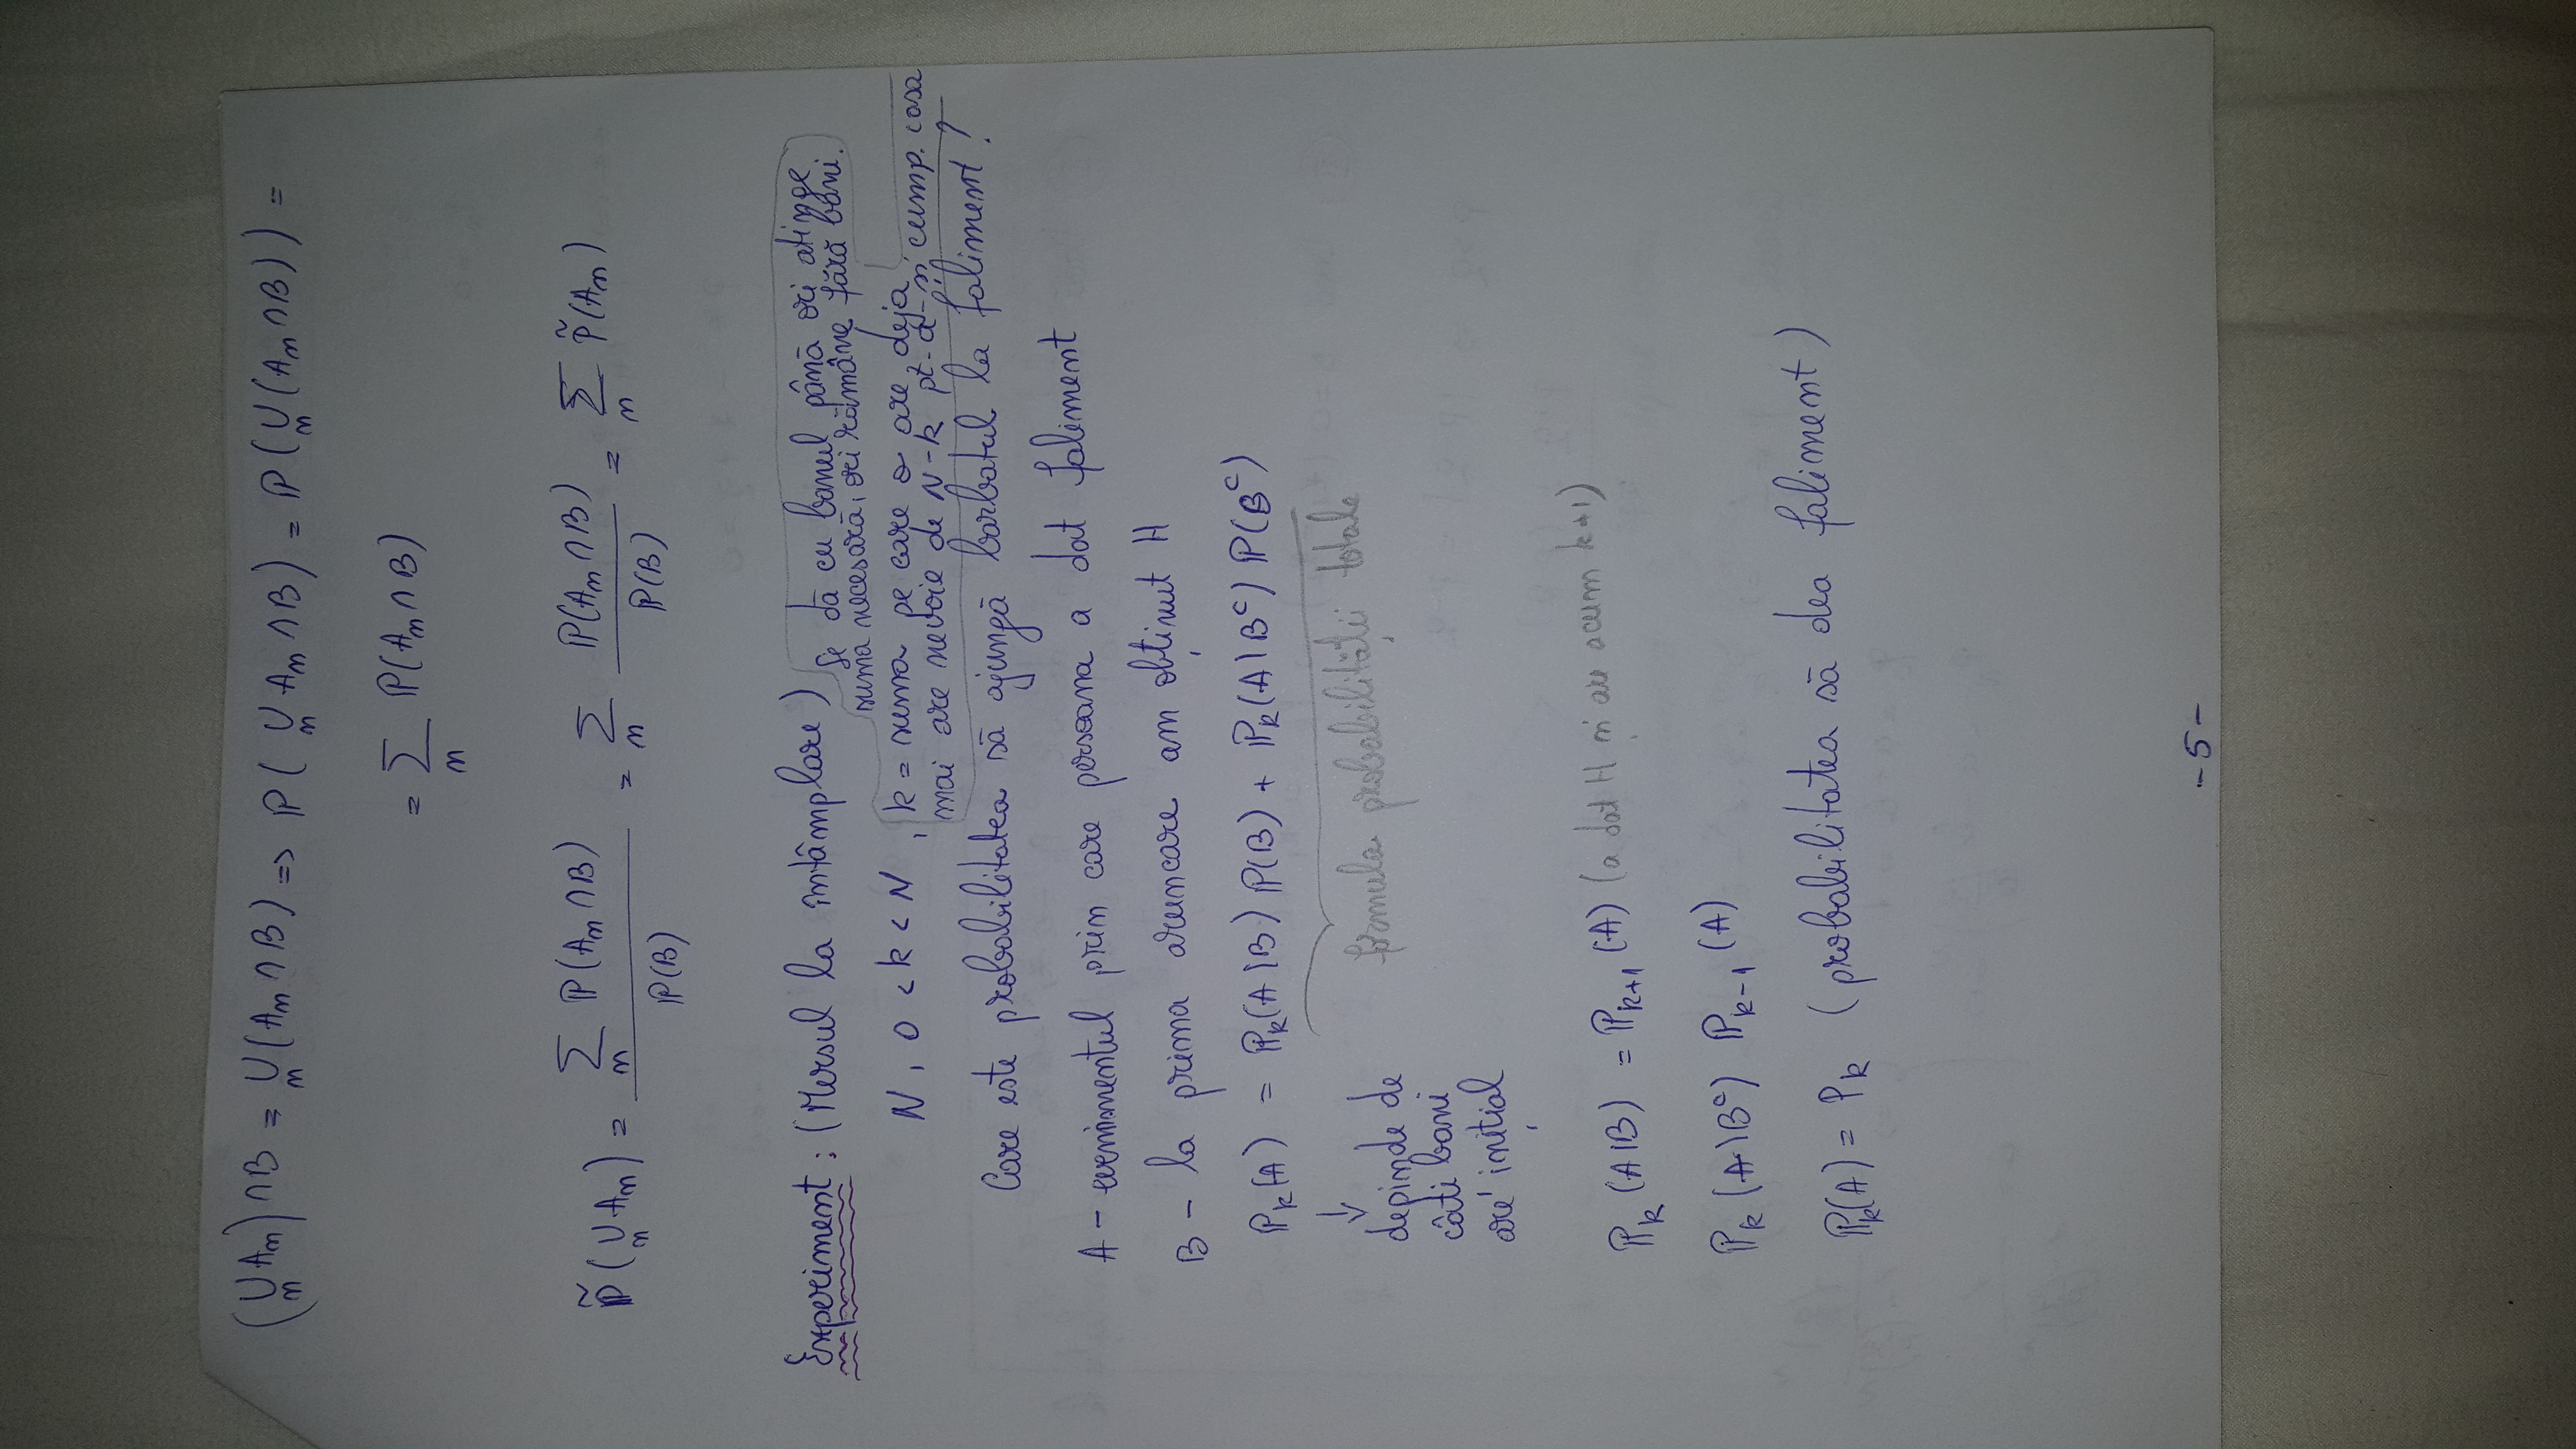 (⋃_n A_n) ∩ B = ⋃_n (A_n ∩ B) => ℙ(⋃_n A_n ∩ B) = ℙ(⋃_n (A_n ∩ B)) =
= ∑_n ℙ(A_n ∩ B)
ℙ̃(⋃_n A_n) = ∑_n ℙ(A_n ∩ B) / ℙ(B) = ∑_n ℙ(A_n ∩ B) / ℙ(B) = ∑_n ℙ̃(A_n)
Experiment: (Mersul la întâmplare) Se dă cu banul până ori atinge
suma necesară, ori rămâne fără bani.
N, 0 < k < N, k = suma pe care o are deja
mai are nevoie de N-k pt-a-și cump. casa
Care este probabilitatea să ajungă barbatul la faliment?
A - evenimentul prin care persoana a dat faliment
B - la prima aruncare am obținut H
ℙ_k(A) = ℙ_k(A|B) ℙ(B) + ℙ_k(A|B^c) ℙ(B^c)
↓
formula probabilității totale
depinde de
câți bani
are inițial
ℙ_k(A|B) = ℙ_{k+1}(A) (a dat H și are acum k+1)
ℙ_k(A|B^c) ℙ_{k-1}(A)
ℙ_k(A) = P_k (probabilitatea să dea faliment)
-5-